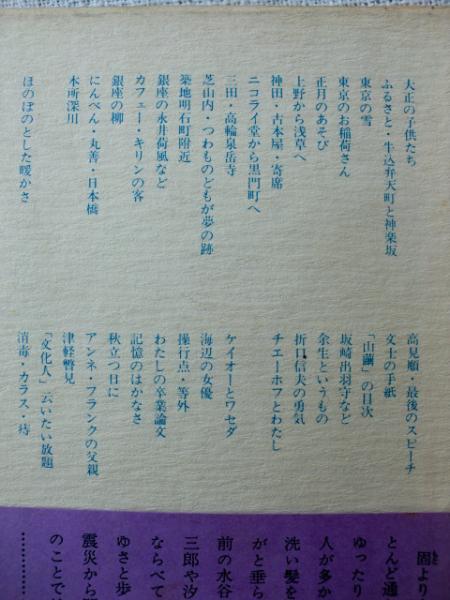 大正の子供たち
ふるさと・牛込弁天町と神楽坂
東京の雪
東京のお稲荷さん
正月のあそび
上野から浅草へ
神田・古本屋・寄席
ニコライ堂から黒門町へ
三田・高輪泉岳寺
芝山内・つわものどもが夢の跡
築地明石町附近
銀座の永井荷風など
カフェー・キリンの客
銀座の柳
にんべん・丸善・日本橋
本所深川
ほのぼのとした暖かさ
高見順・最後のスピーチ
文士の手紙
「山繭」の目次
坂崎出羽守など
余生というもの
折口信夫の勇気
チエーホフとわたし
ケイオーとワセダ
海辺の女優
操行点・等外
わたしの卒業論文
記憶のはかなさ
秋立つ日に
アンネ・フランクの父親
津軽瞥見
「文化人」云いたい放題
消毒・カラス・痔
固より
とんど通
ゆったり
人が多か
洗い髪を
がと垂ら
前の水谷
三郎や汐
ならべて
ゆさと歩
震災から
のことで